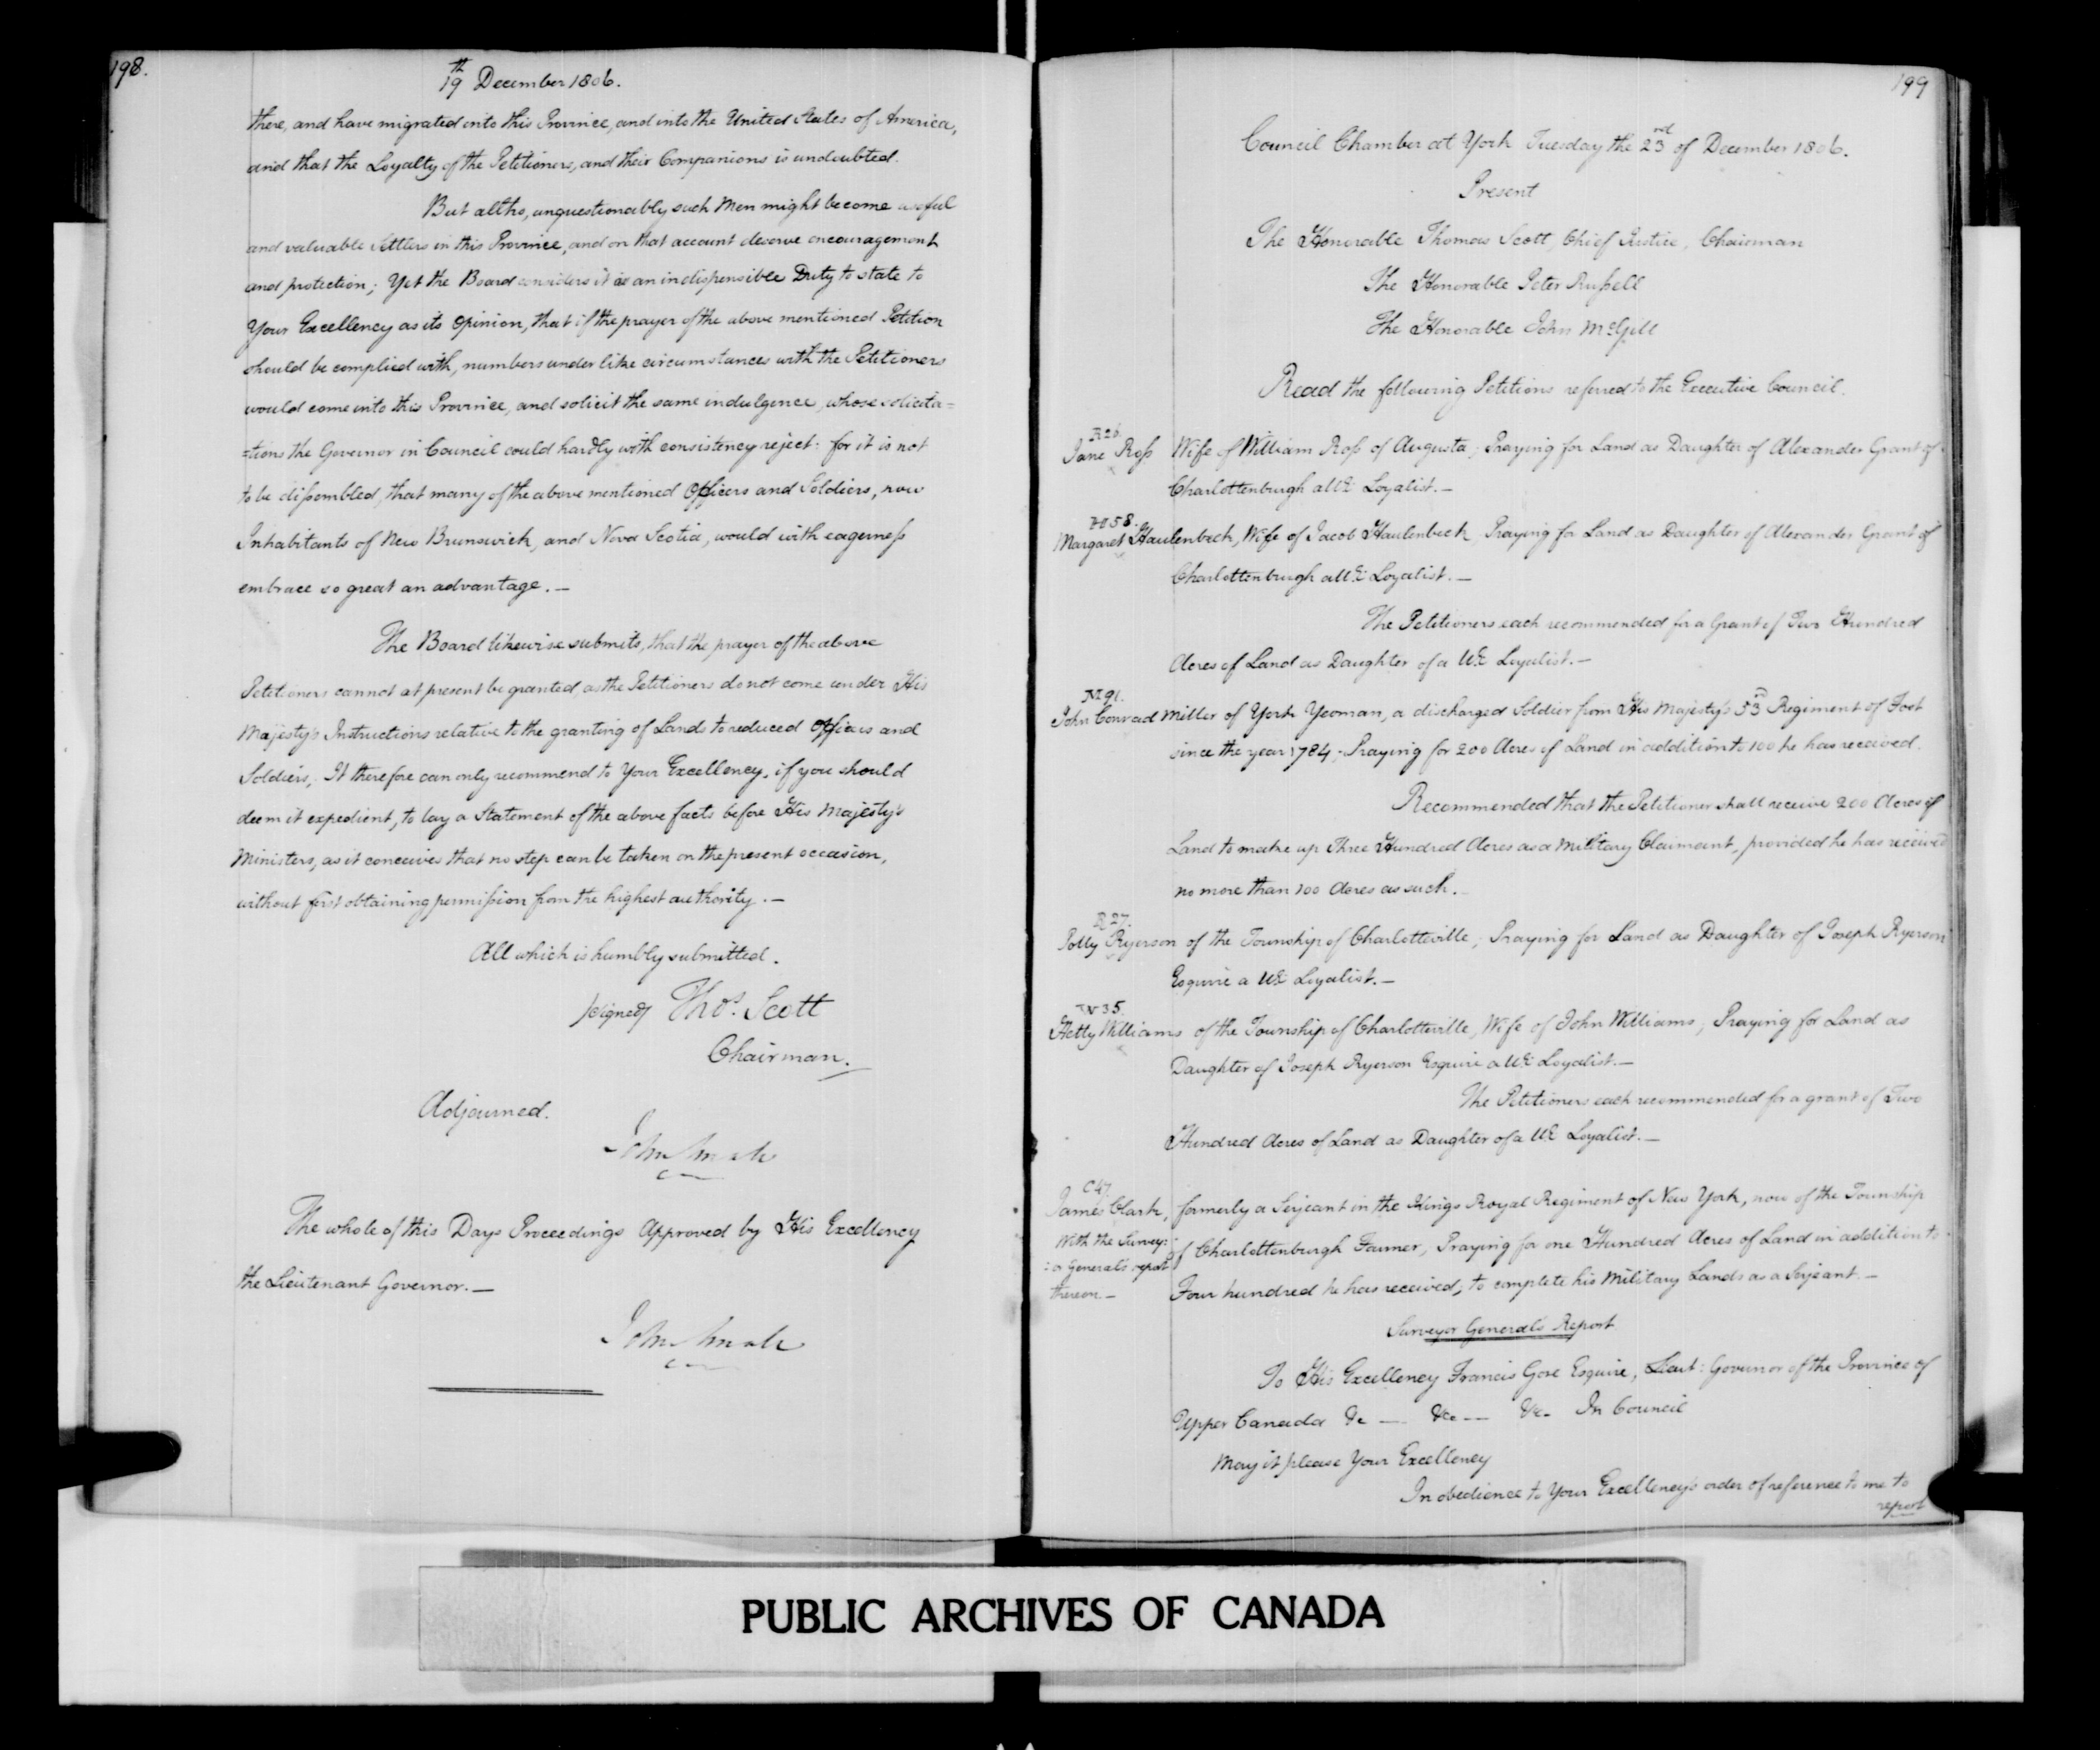 198.
19th December 1806.
there, and have migrated into this Province, and into the United States of America,
and that the Loyalty of the Petitioners, and their Companions is undoubted.
But altho, unquestionably such Men might become useful
and valuable Settlers in this Province, and on that account deserve encouragement
and protection; Yet the Board considers it as an indispensible Duty to state to
Your Excellency as its Opinion, that if the prayer of the above mentioned Petition
should be complied with, numbers under like circumstances with the Petitioners
would come into this Province, and solicit the same indulgence, whose solicita=
=tions the Governor in Council could hardly with consistency reject: for it is not
to be dissembled, that many of the above mentioned Officers and Soldiers, now
Inhabitants of New Brunswick, and Nova Scotia, would with eagerness
embrace so great an advantage.—
The Board likewise submits, that the prayer of the above
Petitioners cannot at present be granted, as the Petitioners do not come under His
Majesty's Instructions relative to the granting of Lands to reduced Officers and
Soldiers; It therefore can only recommend to Your Excellency, if you should
deem it expedient, to lay a Statement of the above facts before His Majesty's
Ministers, as it conceives that no step can be taken on the present occasion,
without first obtaining permission from the highest authority.—
All which is humbly submitted.
(signed) Thos. Scott
Chairman.
Adjourned.
John Small
The whole of this Days Proceedings Approved by His Excellency
the Lieutenant Governor.—
John Small
199
Council Chamber at York Tuesday the 23rd of December 1806.
Present
The Honorable Thomas Scott, Chief Justice, Chairman
The Honorable Peter Russell
The Honorable John McGill
Read the following Petitions referred to the Executive Council.
R26.
Jane Ross Wife of William Ross of Augusta; Praying for Land as Daughter of Alexander Grant of
Charlottenburgh a UE Loyalist.—
H58.
Margaret Haulenbeck, Wife of Jacob Haulenbeck Praying for Land as Daughter of Alexander Grant of
Charlottenburgh a UE Loyalist.—
The Petitioners each recommended for a Grant of Two Hundred
Acres of Land as Daughter of a UE Loyalist.—
M91.
John Conrad Miller of York Yeoman, a discharged Soldier from His Majesty's 53d Regiment of Foot
since the year 1784; Praying for 200 Acres of Land in addition to 100 he has received.
Recommended that the Petitioner shall receive 200 Acres of
Land to make up Three Hundred Acres as a Military Claimant, provided he has received
no more than 100 Acres as such.—
R27.
Polly Ryerson of the Township of Charlotteville; Praying for Land as Daughter of Joseph Ryerson
Esquire a UE Loyalist.—
W35.
Hetty Williams of the Township of Charlotteville, Wife of John Williams; Praying for Land as
Daughter of Joseph Ryerson Esquire a UE Loyalist.—
The Petitioners each recommended for a grant of Two
Hundred Acres of Land as Daughter of a UE Loyalist.—
C47.
James Clark, formerly a Serjeant in the Kings Royal Regiment of New York, now of the Township
With the Survey: of Charlottenburgh Farmer, Praying for one Hundred Acres of Land in addition to
:or General's report
Four hundred he has received, to complete his Military Lands as a Serjeant.—
thereon—
Surveyor General's Report
To His Excellency Francis Gore Esquire, Lieut: Governor of the Province of
Upper Canada &c — &c — &c— In Council
May it please Your Excellency
In obedience to Your Excellency's order of reference to me to
report
PUBLIC ARCHIVES OF CANADA